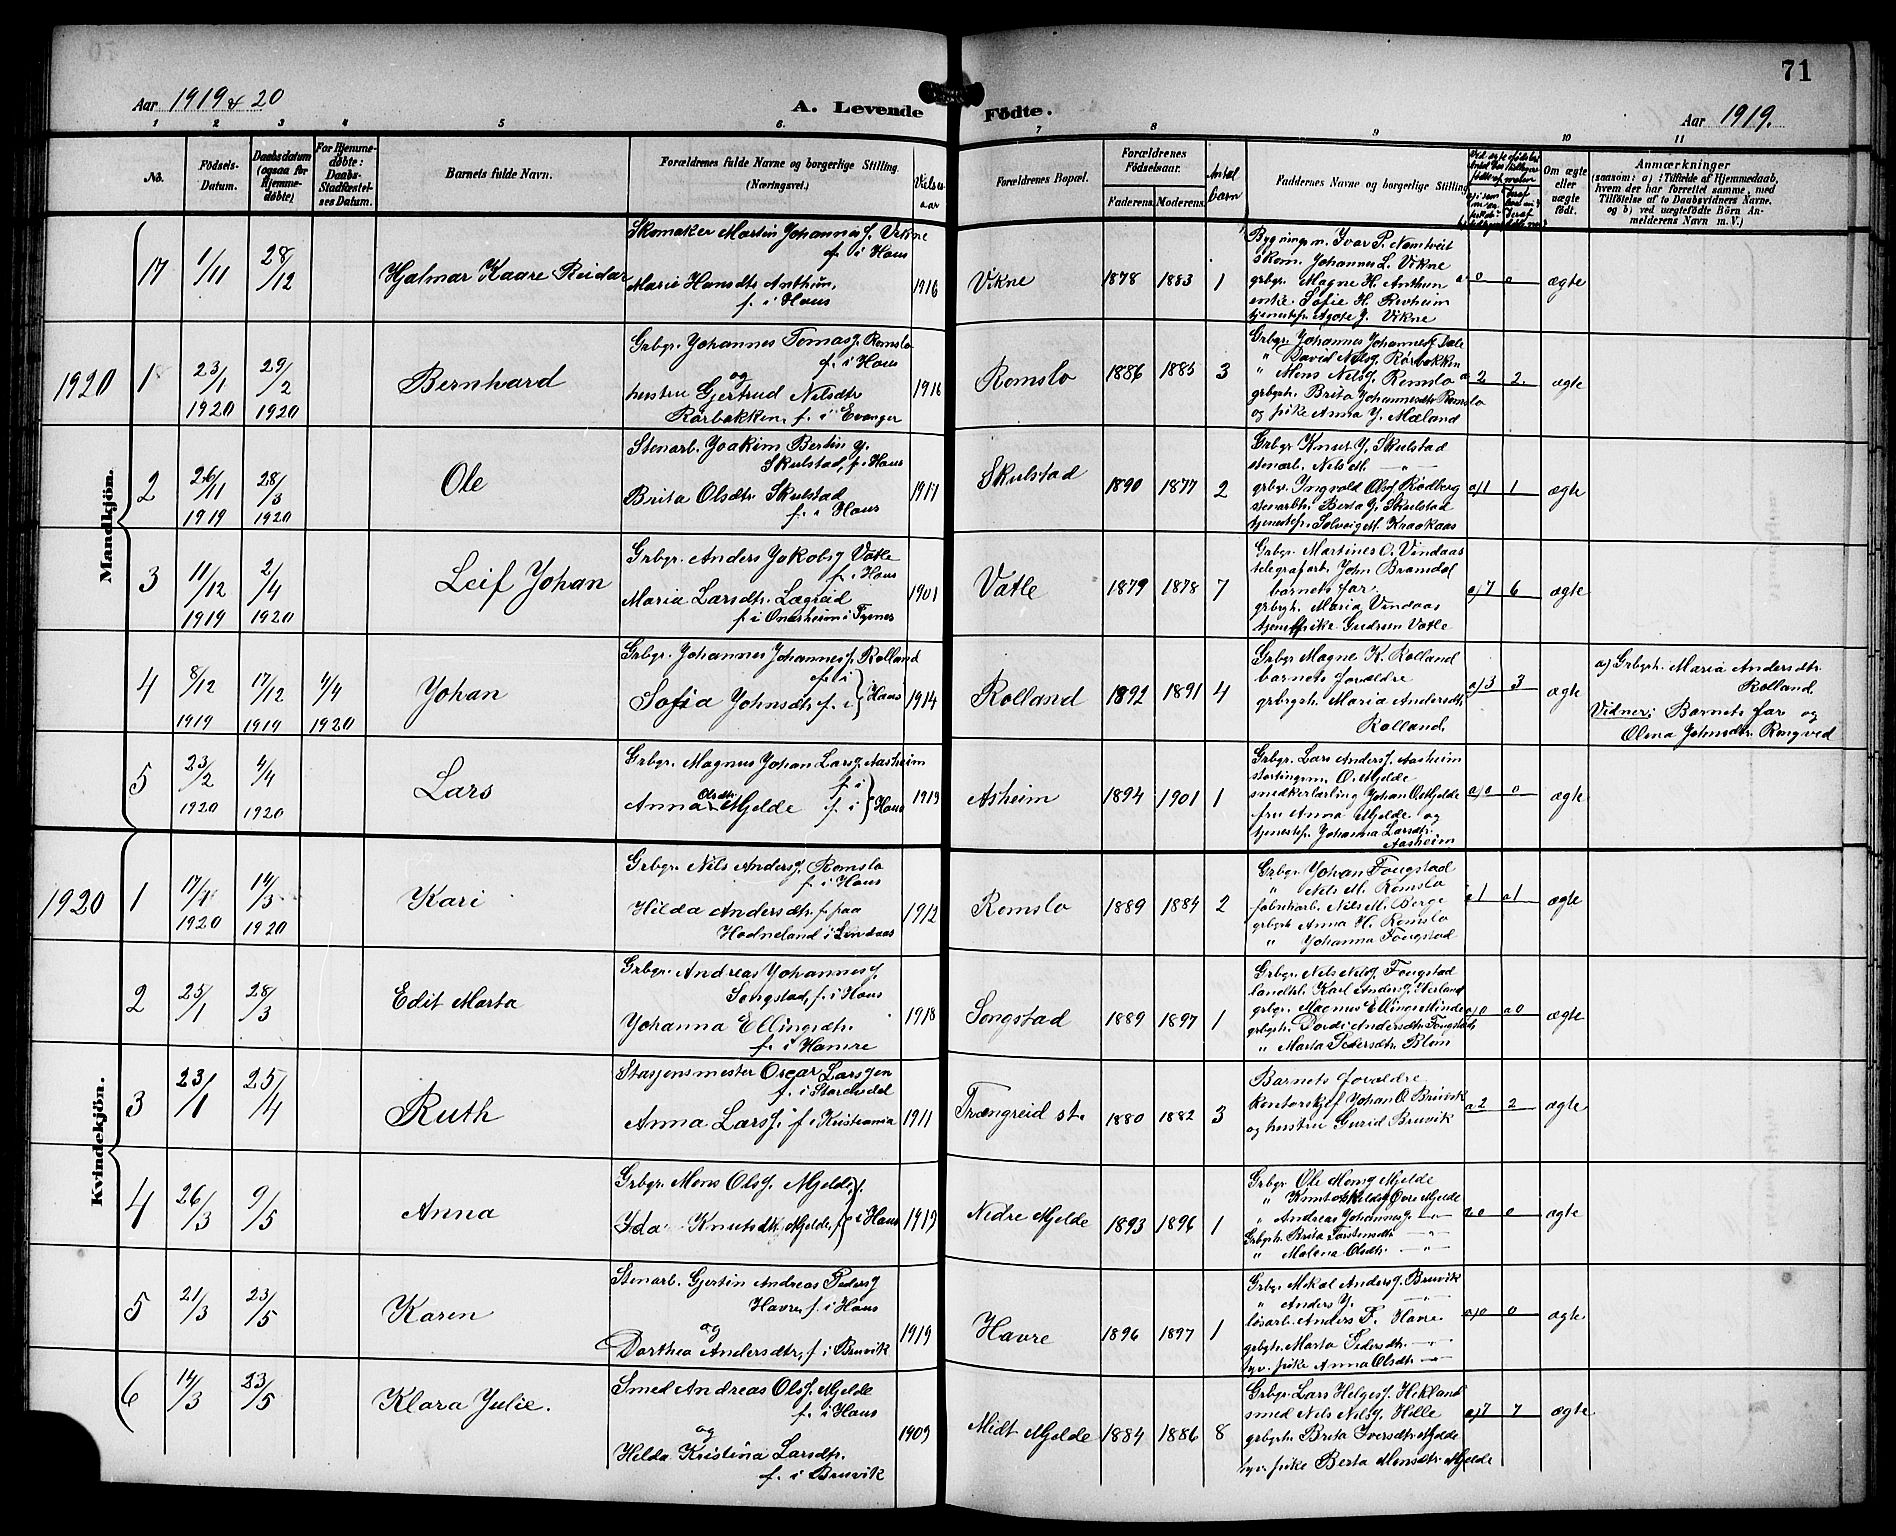 71
Aar 1919 & 20
A. Levende Fødte.
Aar 1919.
1 2 3 4 5 6. 7 8 9 10 11
No.
Fødsels-Datum.
Daabsdatum (ogsaa for Hjemmedøbte)
For Hjemmedøbte: Daabs-Stadfæstelses Datum.
Barnets fulde Navn.
Forældrenes fulde Navne og borgerlige Stilling. (Næringsvei.)
Vielses aar
Forældrenes Bopæl.
Forældrenes Fødselsaar.
Faderens. Moderens.
Antal barn
Faddernes Navne og borgerlige Stilling
Om ægte eller uægte født.
Anmærkninger
(saasom: a) i Tilfælde af Hjemmedaab, hvem der har forrettet samme, med Tilføielse af to Daabsvidners Navne. og b) ved uægtefødte Børn Anmelderens Navn m. V.)
Mandkjön.
17 1/11 28/12 Hjalmar Kaare Reidar
Skomaker Martin Johannes s. Vikne
f. i Haus
Marie Hansdtr. Anthun,
f. i Haus
1916 Vikne 1878 1883 1
Bygningsm. Ivar P. Namtveit
Skom. Johannes L. Vikne
grbgr. Magne H. Anthun
enke Sofie H. Revheim
tjenestep. Agote J. Vikne
a 0 0 ægte
1920 1 23/1 1920 29/2 1920 Bernhard
Grbgr. Johannes Tomasj. Romslo
f. i Haus
og
hustru Gjertrud Nilsdtr.
Rørbakken, f. i Evanger
1916 Romslo 1886 1885 3
Grbgr. Johannes Johannesj. Dale
" David Nilsj. Rørbakken
" Mons Nilsj. Romslo
grbgrh. Brita Johannesdtr. Romslo
og pike Anna J. Mæland
a 2 2. ægte
2 26/11 1919 28/3 1920 Ole
Stenarb. Joakim Bertin J.
Skulstad, f. i Haus
Brita Olsdtr. Skulstad
f. i Haus
1917 Skulstad 1890 1877 2
Grbgr. Knut J. Skulstad
stenarb. Nils M. — " —
grbgr. Ingvald Olsj. Rødberg
stenarbh. Berta J. Skulstad
tjenestep. Solveig M. Kraakaas
a) 1 1 ægte
3 11/12 1919 2/4 1920 Leif Johan
Grbgr. Anders Jakobsj. Vatle
f. i Haus
Maria Larsdtr. Lægreid
f. i Onarheim i Tysnes
1901 Vatle 1879 1878 7
Grbgr. Martines O. Vindaas
telegrafarb. John Bramdal
barnets far
grbgrh. Maria Vindaas
tjenestpike Gudrun Vatle
a) 7 6 ægte
4 8/12 1919 17/12 1919 4/4 1920 Johan
Grbgr. Johannes Johannesj. Rolland
f. i
Sofia Johnsdtr. f. i } Haus
1914 Rolland 1892 1891 4
Grbgr. Magne K. Rolland
barnets forældre
grbgrh. Maria Andersdtr.
Rolland.
a) 3 3 ægte
a) Grbgrh. Maria Andersdtr.
Rolland
Vidner: Barnets far og
Olina Johnsdtr. Ringved
5 23/2 1920 4/4 1920 Lars
Grbgr. Magnus Johan Larsj. Aasheim
f. i
Anna Olsdtr. Mjelde f. i } Haus
1919 Asheim 1894 1901 1
Grbgr. Lars Andersj. Aasheim
stortingsm. O. Mjelde
smedkerlærling Johan O. Mjelde
fru Anna Mjelde og
tjenestep. Johanna Larsdtr.
Aasheim
a) 0 0 ægte
Kvindekjön.
1920 1 17/1 1920 14/3 1920 Kari
Grbgr. Nils Andersj. Romslo
f. i Haus
Hilda Andersdtr. f. paa
Hodneland i Lindaas
1912 Romslo 1889 1884 2
Grbgr. Johan Fongstad
" Nils M. Romslo
fabrikarb. Nils M. Berge
grbgrh. Anna H. Romslo
" Johanna Fongstad
a 1 a 1 ægte
2 25/1 28/3 Edit Marta
Grbgr. Andreas Johannesj.
Songstad, f. i Haus
Johanna Ellingsdtr.
f. i Hamre
1918 Songstad 1889 1897 1
Grbgr. Nils Nilsj. Fongstad
landth. Karl Andersj. Værland
grbgr. Magnus Ellings Minde
grbgrh. Dordi Andersdtr. Fongstad
" Marta Pedersdtr. Blom
a) 0 a 0 ægte
3 23/1 25/4 Ruth
Stasjonsmester Oscar Larssen
f. i Stordædal
Anna Larsj. f. i Kristiania
1911 Trængreid st. 1880 1882 3
Barnets forældre
Kontorskjef Johan O. Bruvik
og hustru Gurid Bruvik
a 2 2 ægte
4 26/3 9/5 Anna
Grbgr. Mons Olsj. Mjelde, f.
Ida Knutsdtr. Mjelde, f. } i Haus
1919 Nedre Mjelde 1893 1896 1
Grbgr. Ole Monsj. Mjelde
" Knut Askildsj. Øvre Mjelde
" Andreas Johannesj. — " —
Grbgrh. Brita Torsteinsdtr. — " —
" Malena Olsdtr. — " —
a 0 0 ægte
5 21/3 23/5 Karen
Stenarb. Gjertin Andreas Pedersj.
Havre, f. i Haus
og
Dorthea Andersdtr., f. i Bruvik
1919 Havre 1896 1897 1
Grbgr. Mikal Andersj. Bruvik
" Anders J. — " —
løsarb. Anders P. Havre
gbgrh. Marta Pedersdtr. — " —
tyv. pike Anna Olsdtr. — " —
a) 0 0 ægte
6 14/3 23/5 Klara Julie.
Smed Andreas Olsj. Mjelde
f. i Haus
og
Hilda Kristina Larsdtr.
f. i Bruvik
1909 Midt Mjelde 1884 1886 8
Grbgr. Lars Helgesj. Hikland
smed Nils Nilsj. Hille
grbgrh. Brita Iversdtr. Mjelde
tyv. pike Berta Monsdtr. Mjelde
a) 7 7 ægte